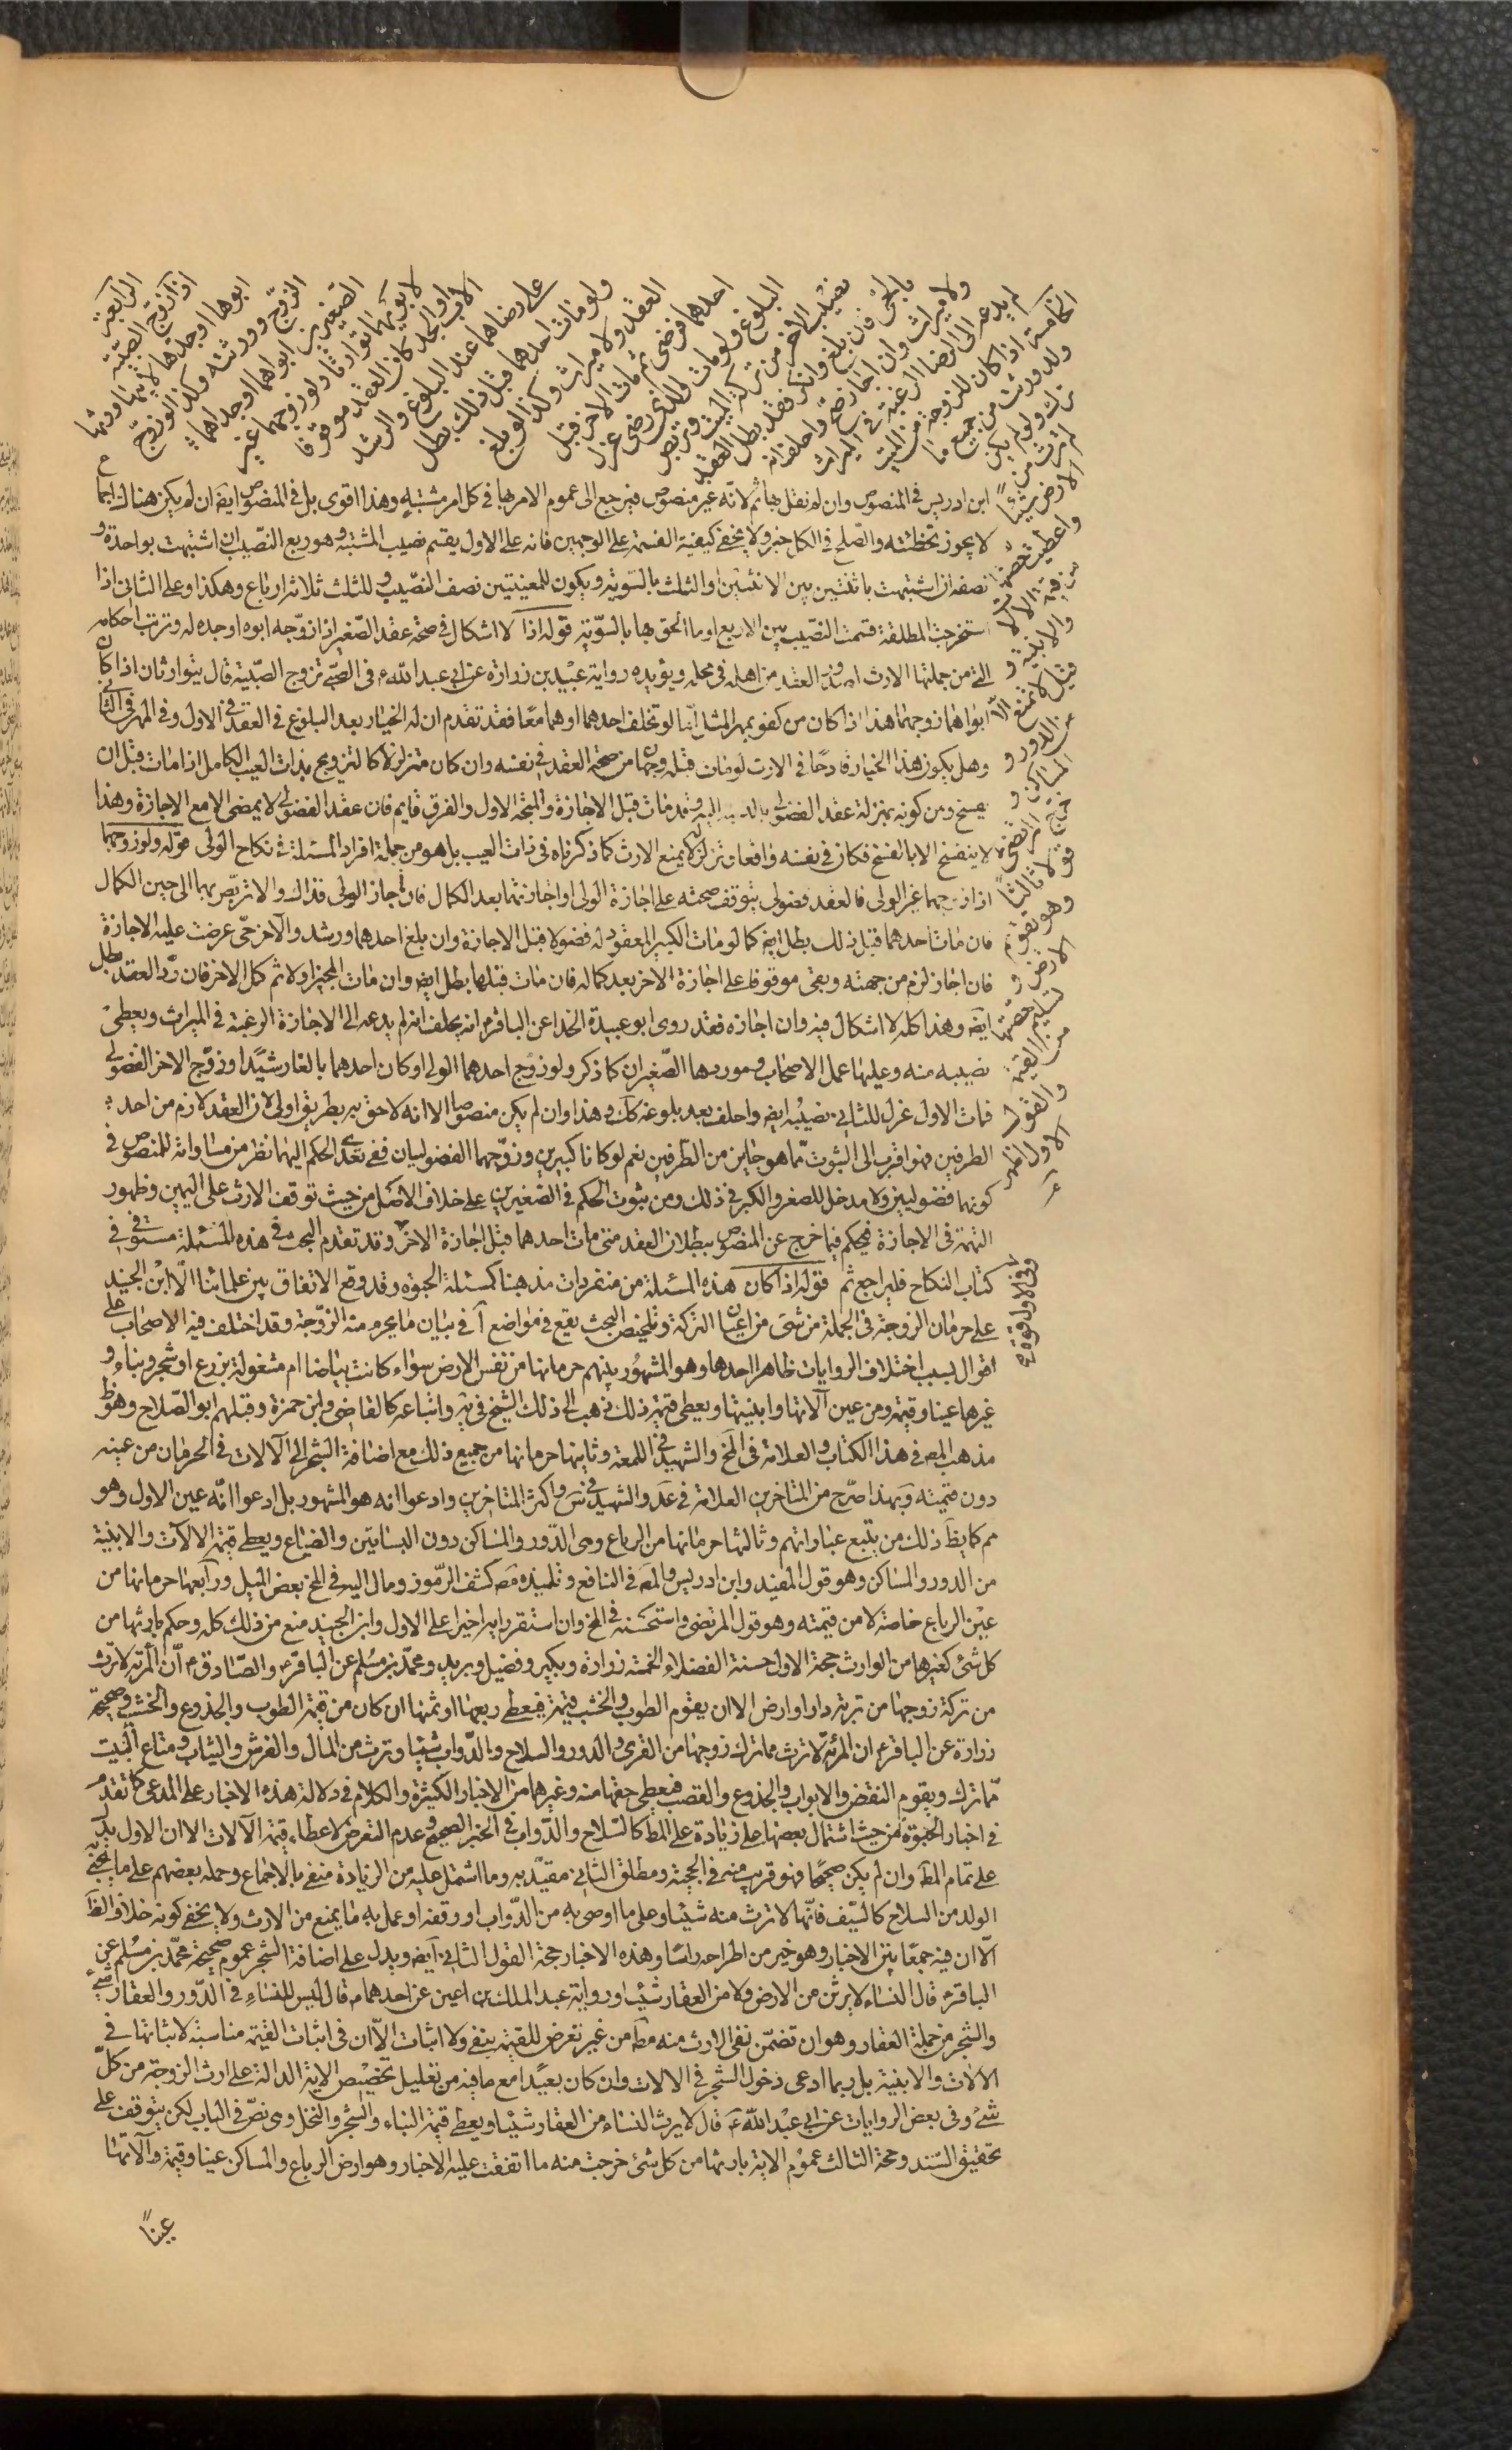 الرابعة
اذا زوج الصبية
ابوها او جدها لابيها ورثها
الزوج وورثته وكذا لو زوج
الصغيرين ابواهما او جداهما
لابويهما توارثا ولو زوجهما غير
الاب او الجد كان العقد موقوفا
على رضاهما عند البلوغ والرشد
ولو مات احدهما قبل ذلك بطل
العقد ولا ميراث وكذا لو بلغ
احدهما فرضى ثم مات الاخر قبل
البلوغ ولو مات الذى رضى عزل
نصيب الاخر من تركة الميت وتربص
بالحى فان بلغ وانكر فقد بطل العقد
ولا ميراث وان اجاز صح واحلف انه
لم يدعه الى الرضا الرغبة فى الميراث
الخامسة اذا كان للزوجة من الميت
ولد ورثت من جميع ما
ترك ولو لم يكن
لم ترث من
الارض شيئا
واعطيت حصتها
من قيمة الالا
والابنية و
قيل لا تمنع الا
من الدور و
المساكن و
خرج المرتضى ره
قولا ثالثا
وهو تقويم
الارض و
تسليم حصتها
من القيمة
والقول
الاول اظهر
ابن ادريس فى المنصوص وان لم نقل بها ثم لانه غير منصوص فيرجع الى عموم الامر بها فى كل امر مشتبه وهذا اقوى بل فى المنصوص ايضا ان لم يكن هناك اجما
لا يجوز تخطئته والصلح فى الكل خير ولا يخفى كيفية القسمة على الوجهين فانه على الاول يقسم نصيب المشتبه وهو ربع النصيب ان اشتبهت بواحدة و
نصفه ان اشتبهت باثنتين بين الاثنتين او الثلث بالسوية ويكون للمعينتين نصف النصيب وللثلث ثلاثة ارباع وهكذا وعلى الثانى اذا
استخرجت المطلقة قسمت النصيب بين الاربع او ما الحق بها بالسوية قوله اذا لا اشكال فى صحة عقد الصغير اذا زوجه ابوه او جده له وترتب احكامه
التى من جملتها الارث لصدور العقد من اهله فى محله ويؤيده رواية عبيد بن زرارة عن ابى عبد الله ع فى الصبى تزوج الصبية قال يتوارثان اذا كان
ابواهما زوجاهما هذا اذا كان من كفو بمهر المثل اما لو تخلف احدهما او هما معا فقد تقدم ان له الخيار بعد البلوغ فى العقد فى الاول وفى المهر فى الثانى
وهل يكون هذا الخيار قادحا فى الارث لو مات قبله وجهان من صحة العقد فى نفسه وان كان متزلزلا كالتزويج بذات العيب الكامل اذا مات قبل ان
يفسخ ومن كونه بمنزلة عقد الفضولى بالنسبة اليه وقد مات قبل الاجازة والمتجه الاول والفرق قايم فان عقد الفضولى لا يمضى الا مع الاجازة وهذا
لا ينفسخ الا بالفسخ فكان فى نفسه واقعا وتزلزله لا يمنع الارث كما ذكرناه فى ذات العيب بل هو من جملة افراد المسئلة فى نكاح الولى قوله ولو زوجهما
اذا زوجهما غير الولى فالعقد فضولى يتوقف صحته على اجازة الولى او اجازتهما بعد الكمال فان اجاز الولى فذاك والا تربص بهما الى حين الكمال
فان مات احدهما قبل ذلك بطل ايضا كما لو مات الكبير المعقود له فضولا قبل الاجازة وان بلغ احدهما ورشد والاخر حى عرضت عليه الاجازة
فان اجاز لزم من جهته وبقى موقوفا على اجازة الاخر بعد كماله فان مات قبلها بطل ايضا وان مات المجيز اولا ثم كمل الاخر فان رد العقد بطل
ايضا وهذا كله لا اشكال فيه وان اجازه فقد روى ابو عبيدة الحذا عن الباقر ع انه يحلف انه لم يدعه الى الاجازة الرغبة فى الميراث ويعطى
نصيبه منه وعليها عمل الاصحاب وموردها الصغيران كما ذكر ولو زوج احدهما الولى او كان احدهما بالغا رشيدا وزوج الاخر الفضولى
فمات الاول عزل للثانى نصيبه ايضا واحلف بعد بلوغه كك وهذا وان لم يكن منصوصا الا انه لاحق به بطريق اولى لان العقد لازم من احد
الطرفين فهو اقرب الى الثبوت مما هو جايز من الطرفين نعم لو كانا كبيرين وزوجهما الفضوليان ففى تعدى الحكم اليهما نظر من مساواته للمنصوص فى
كونهما فضوليين ولا مدخل للصغر والكبر فى ذلك ومن ثبوت الحكم فى الصغيرين على خلاف الاصل من حيث توقف الارث على اليمين وظهور
التهمة فى الاجازة فيحكم فيما خرج عن المنصوص ببطلان العقد متى مات احدهما قبل اجازة الاخر وقد تقدم البحث فى هذه المسئلة مستوفى فى
كتاب النكاح فليراجع ثم قوله اذا كان هذه المسئلة من متفردات مذهبنا كمسئلة الحبوة وقد وقع الاتفاق بين علمائنا الا ابن الجنيد
على حرمان الزوجة فى الجملة من شىء من اعيان التركة وتلخيص البحث يقع فى مواضع آ فى بيان ما يحرم منه الزوجة وقد اختلف فيه الاصحاب على
اقوال بسبب اختلاف الروايات ظاهرا احدها وهو المشهور بينهم حرمانها من نفس الارض سواء كانت بياضا ام مشغولة بزرع او شجر وبناء و
غيرها عينا وقيمة ومن عين آلاتها وابنيتها ويعطى قيمة ذلك ذهب الى ذلك الشيخ فى يه واتباعه كالقاضى وابن حمزة وقبلهم ابو الصلاح وهو ظ
مذهب المصـ فى هذا الكتاب والعلامة فى المخ والشهيد فى اللمعة وثانيها حرمانها من جميع ذلك مع اضافة الشجر الى الآلات فى الحرمان من عينه
دون قيمته وبهذا صرح من المتاخرين العلامة فى عد والشهيد فى س واكثر المتاخرين وادعوا انه هو المشهور بل ادعوا انه عين الاول وهو
مم كما يظ ذلك من يتبع عباراتهم وثالثها حرمانها من الرباع وهى الدور والمساكن دون البساتين والضياع ويعطى قيمة الالآت والابنية
من الدور والمساكن وهو قول المفيد وابن ادريس والمصـ فى النافع وتلميذه فى كشف الرموز ومال اليه فى المخ بعض الميل ورابعها حرمانها من
عين الرباع خاصة لا من قيمته وهو قول المرتضى واستحسنه فى المخ وان استقر رايه اخيرا على الاول وابن الجنيد منع من ذلك كله وحكم بارثها من
كل شئ كغيرها من الوارث حجة الاول حسنة الفضلاء الخمسة زرارة وبكير وفضيل وبريد ومحمد بن مسلم عن الباقر ع والصادق ع ان المرئة لا ترث
من تركة زوجها من تربة دار او ارض الا ان يقوم الطوب والخشب قيمة فيعطى ربعها او ثمنها ان كان من قيمة الطوب والجذوع والخشب وصحيحة
زرارة عن الباقر ع ان المرئة لا ترث مما ترك زوجها من القرى والدور والسلاح والدواب شيئا وترث من المال والفرش والثياب ومتاع البيت
مما ترك ويقوم النقض والابواب والجذوع والقصب فيعطى حقها منه وغيرهما من الاخبار الكثيرة والكلام فى دلالة هذه الاخبار على المدعى كما تقدم
فى اخبار الحبوة من حيث اشتمال بعضها على زيادة على المط كالسلاح والدواب فى الخبر الصحيح وعدم التعرض لاعطاء قيمة الآلات الا ان الاول يدل
على تمام المط وان لم يكن صحيحا فهو قريب منه فى الحجية ومطلق الثانى مقيد به وما اشتمل عليه من الزيادة منفى بالاجماع وحمله بعضهم على ما يحبى به
الولد من السلاح كالسيف فانها لا ترث منه شيئا وعلى ما اوصى به من الدواب او وقفه او عمل به ما يمنع من الارث ولا يخفى كونه خلاف الظ
الا ان فيه جمعا بين الاخبار وهو خير من اطراحه راسا وهذه الاخبار حجة القول الثانى ايضا ويدل على اضافة الشجر عموم صحيحة محمد بن مسلم عن
الباقر ع قال النساء لا يرثن من الارض ولا من العقار شيئا ورواية عبد الملك بن اعين عن احدهما ع قال ليس للنساء فى الدور والعقار شئ
والشجر من جملة العقار وهو ان تضمن نفى الارث منه مط من غير تعرض للقيمة بنفى ولا اثبات الا ان فى اثبات القيمة مناسبة لاثباتها فى
الالات والابنية بل ربما ادعى دخول الشجر فى الالات وان كان بعيدا مع ما فيه من تقليل تخصيص الاية الدالة على ارث الزوجة من كل
شئ وفى بعض الروايات عن ابى عبد الله ع قال لا يرث النساء من العقار شيئا ويعطى قيمة البناء والشجر والنخل وهى نص فى الباب لكن يتوقف على
تحقيق السند وحجة الثالث عموم الاية بارثها من كل شئ خرجت منه ما اتفقت عليه الاخبار وهو ارض الرباع والمساكن عينا وقيمة وآلاتها
عينا